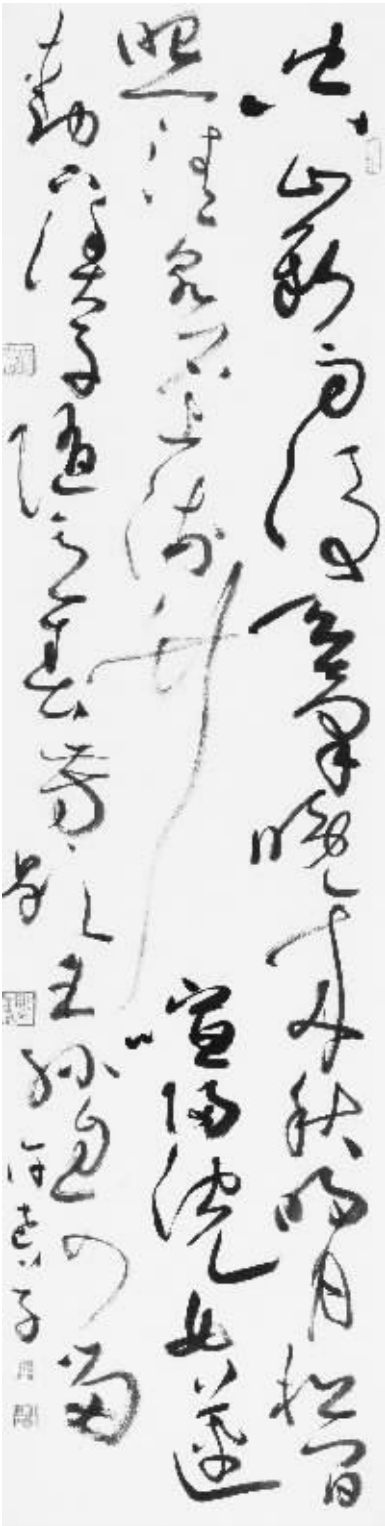 空山新雨後天氣晚來秋明月松間
照清泉石上流竹喧歸浣女蓮
動下漁舟隨意春芳歇王孫自可留